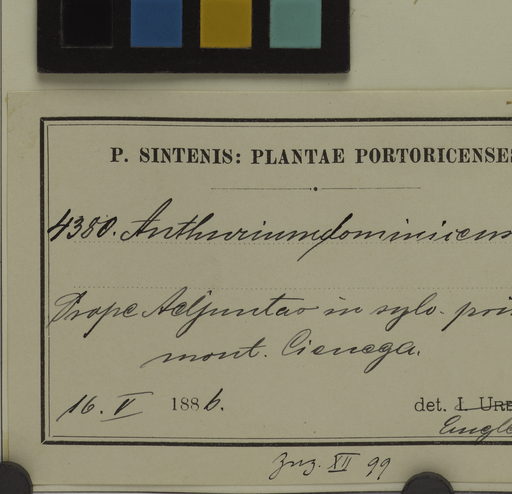 P. SINTENIS: PLANTAE PORTORICENSES
4380. Anthurium dominicens
Prope Adjuntas in sylv. pri
mont. Cienega.
16. V 1886. det. I. URB
Engle
XII 99